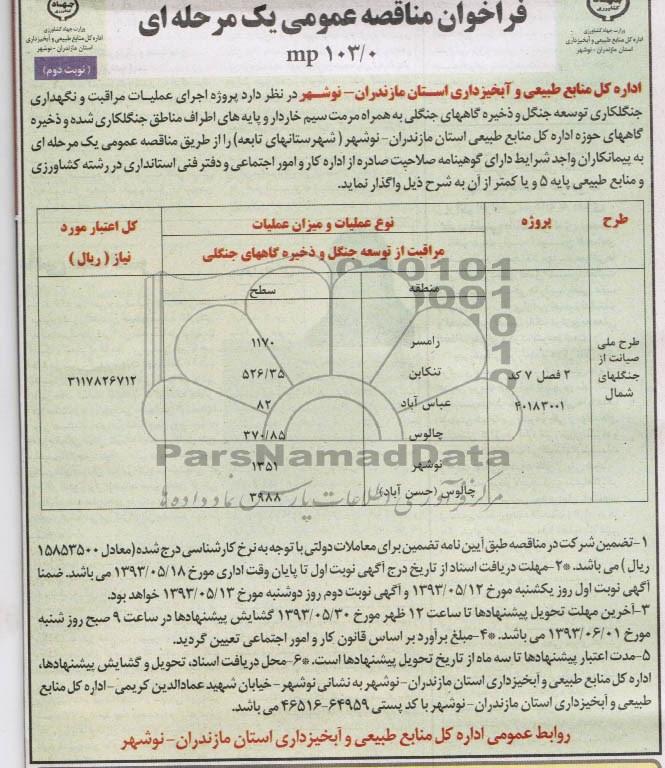 فراخوان مناقصه عمومی یک مرحله ای
mp ۱۰۳/۰
جهاد
کشاورزی
وزارت جهاد کشاورزی
اداره کل منابع طبیعی و آبخیزداری
استان مازندران - نوشهر
وزارت جهاد کشاورزی
اداره کل منابع طبیعی و آبخیزداری
استان مازندران - نوشهر
( نوبت دوم )
اداره کل منابع طبیعی و آبخیزداری استان مازندران- نوشهر در نظر دارد پروژه اجرای عملیات مراقبت و نگهداری
جنگلکاری توسعه جنگل و ذخیره گاههای جنگلی به همراه مرمت سیم خاردار و پایه های اطراف مناطق جنگلکاری شده و ذخیره
گاههای حوزه اداره کل منابع طبیعی استان مازندران- نوشهر ( شهرستانهای تابعه) را از طریق مناقصه عمومی یک مرحله ای
به پیمانکاران واجد شرایط دارای گوهینامه صلاحیت صادره از اداره کار و امور اجتماعی و دفتر فنی استانداری در رشته کشاورزی
و منابع طبیعی پایه ۵ و یا کمتر از آن به شرح ذیل واگذار نماید.
طرح
پروژه
نوع عملیات و میزان عملیات
مراقبت از توسعه جنگل و ذخیره گاههای جنگلی
کل اعتبار مورد
نیاز ( ریال )
منطقه سطح
طرح ملی
صیانت از
جنگلهای
شمال
۲ فصل ۷ کد
۴۰۱۸۳۰۰۱
رامسر ۱۱۷۰
تنکابن ۵۲۶/۳۵
عباس آباد ۸۲
چالوس ۳۷۰/۸۵
نوشهر ۱۳۵۱
چالوس (حسن آباد) ۳۹۸۸
۳۱۱۷۸۲۶۷۱۲
ParsNamadData
مرکز فرآوری اطلاعات پارس نماد داده ها
۱-تضمین شرکت در مناقصه طبق آیین نامه تضمین برای معاملات دولتی با توجه به نرخ کارشناسی درج شده (معادل ۱۵۸۵۳۵۰۰
ریال ) می باشد. *۲-مهلت دریافت اسناد از تاریخ درج آگهی نوبت اول تا پایان وقت اداری مورخ ۱۳۹۳/۰۵/۱۸ می باشد. ضمنا
آگهی نوبت اول روز یکشنبه مورخ ۱۳۹۳/۰۵/۱۲ و آگهی نوبت دوم روز دوشنبه مورخ ۱۳۹۳/۰۵/۱۳ خواهد بود.
۳-آخرین مهلت تحویل پیشنهادها تا ساعت ۱۲ ظهر مورخ ۱۳۹۳/۰۵/۳۰ گشایش پیشنهادها در ساعت ۹ صبح روز شنبه
مورخ ۱۳۹۳/۰۶/۰۱ می باشد. *۴-مبلغ برآورد بر اساس قانون کار و امور اجتماعی تعیین گردید.
۵-مدت اعتبار پیشنهادها تا سه ماه از تاریخ تحویل پیشنهادها است. *۶-محل دریافت اسناد، تحویل و گشایش پیشنهادها،
اداره کل منابع طبیعی و آبخیزداری استان مازندران- نوشهر به نشانی نوشهر- خیابان شهید عمادالدین کریمی- اداره کل منابع
طبیعی و آبخیزداری استان مازندران- نوشهر با کد پستی ۶۴۹۵۹-۴۶۵۱۶ می باشد.
روابط عمومی اداره کل منابع طبیعی و آبخیزداری استان مازندران- نوشهر